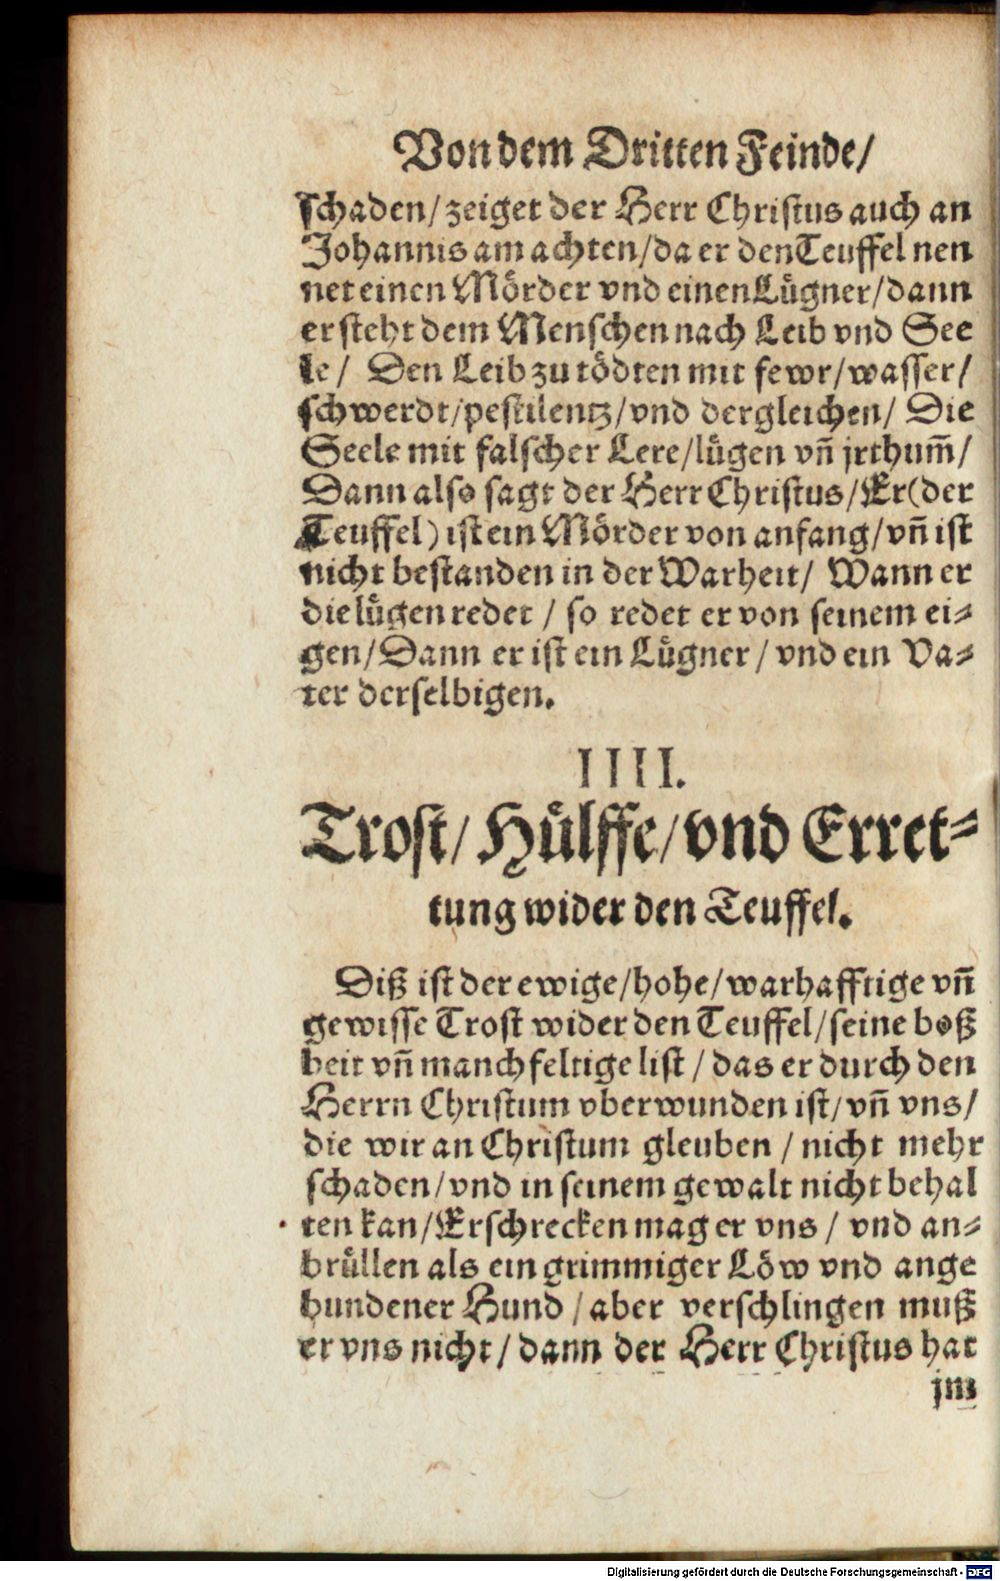 Von dem Dritten Feinde/
schaden/ zeiget der Herr Christus auch an
Johannis am achten/ da er den Teuffel nen
net einen Mörder vnd einen Lügner/ dann
er steht dem Menschen nach Leib vnd See
le/ Den Leib zu tödten mit fewr/ wasser/
schwerdt/ pestilentz/ vnd dergleichen/ Die
Seele mit falscher Lere/ lügen vñ jrthum̃/
Dann also sagt der Herr Christus/ Er (der
Teuffel) ist ein Mörder von anfang/ vñ ist
nicht bestanden in der Warheit/ Wann er
die lügen redet / so redet er von seinem ei⸗
gen/ Dann er ist ein Lügner / vnd ein Va⸗
ter derselbigen.
IIII.
Trost/ Hülffe/ vnd Erret⸗
tung wider den Teuffel.
Diß ist der ewige/ hohe/ warhafftige vñ
gewisse Trost wider den Teuffel/ seine boß
heit vñ manchfeltige list / das er durch den
Herrn Christum vberwunden ist/ vñ vns/
die wir an Christum gleuben / nicht mehr
schaden/ vnd in seinem gewalt nicht behal
ten kan/ Erschrecken mag er vns / vnd an⸗
brüllen als ein grimmiger Löw vnd ange
bundener Hund / aber verschlingen muß
er vns nicht / dann der Herr Christus hat
jm
Digitalisierung gefördert durch die Deutsche Forschungsgemeinschaft - DFG